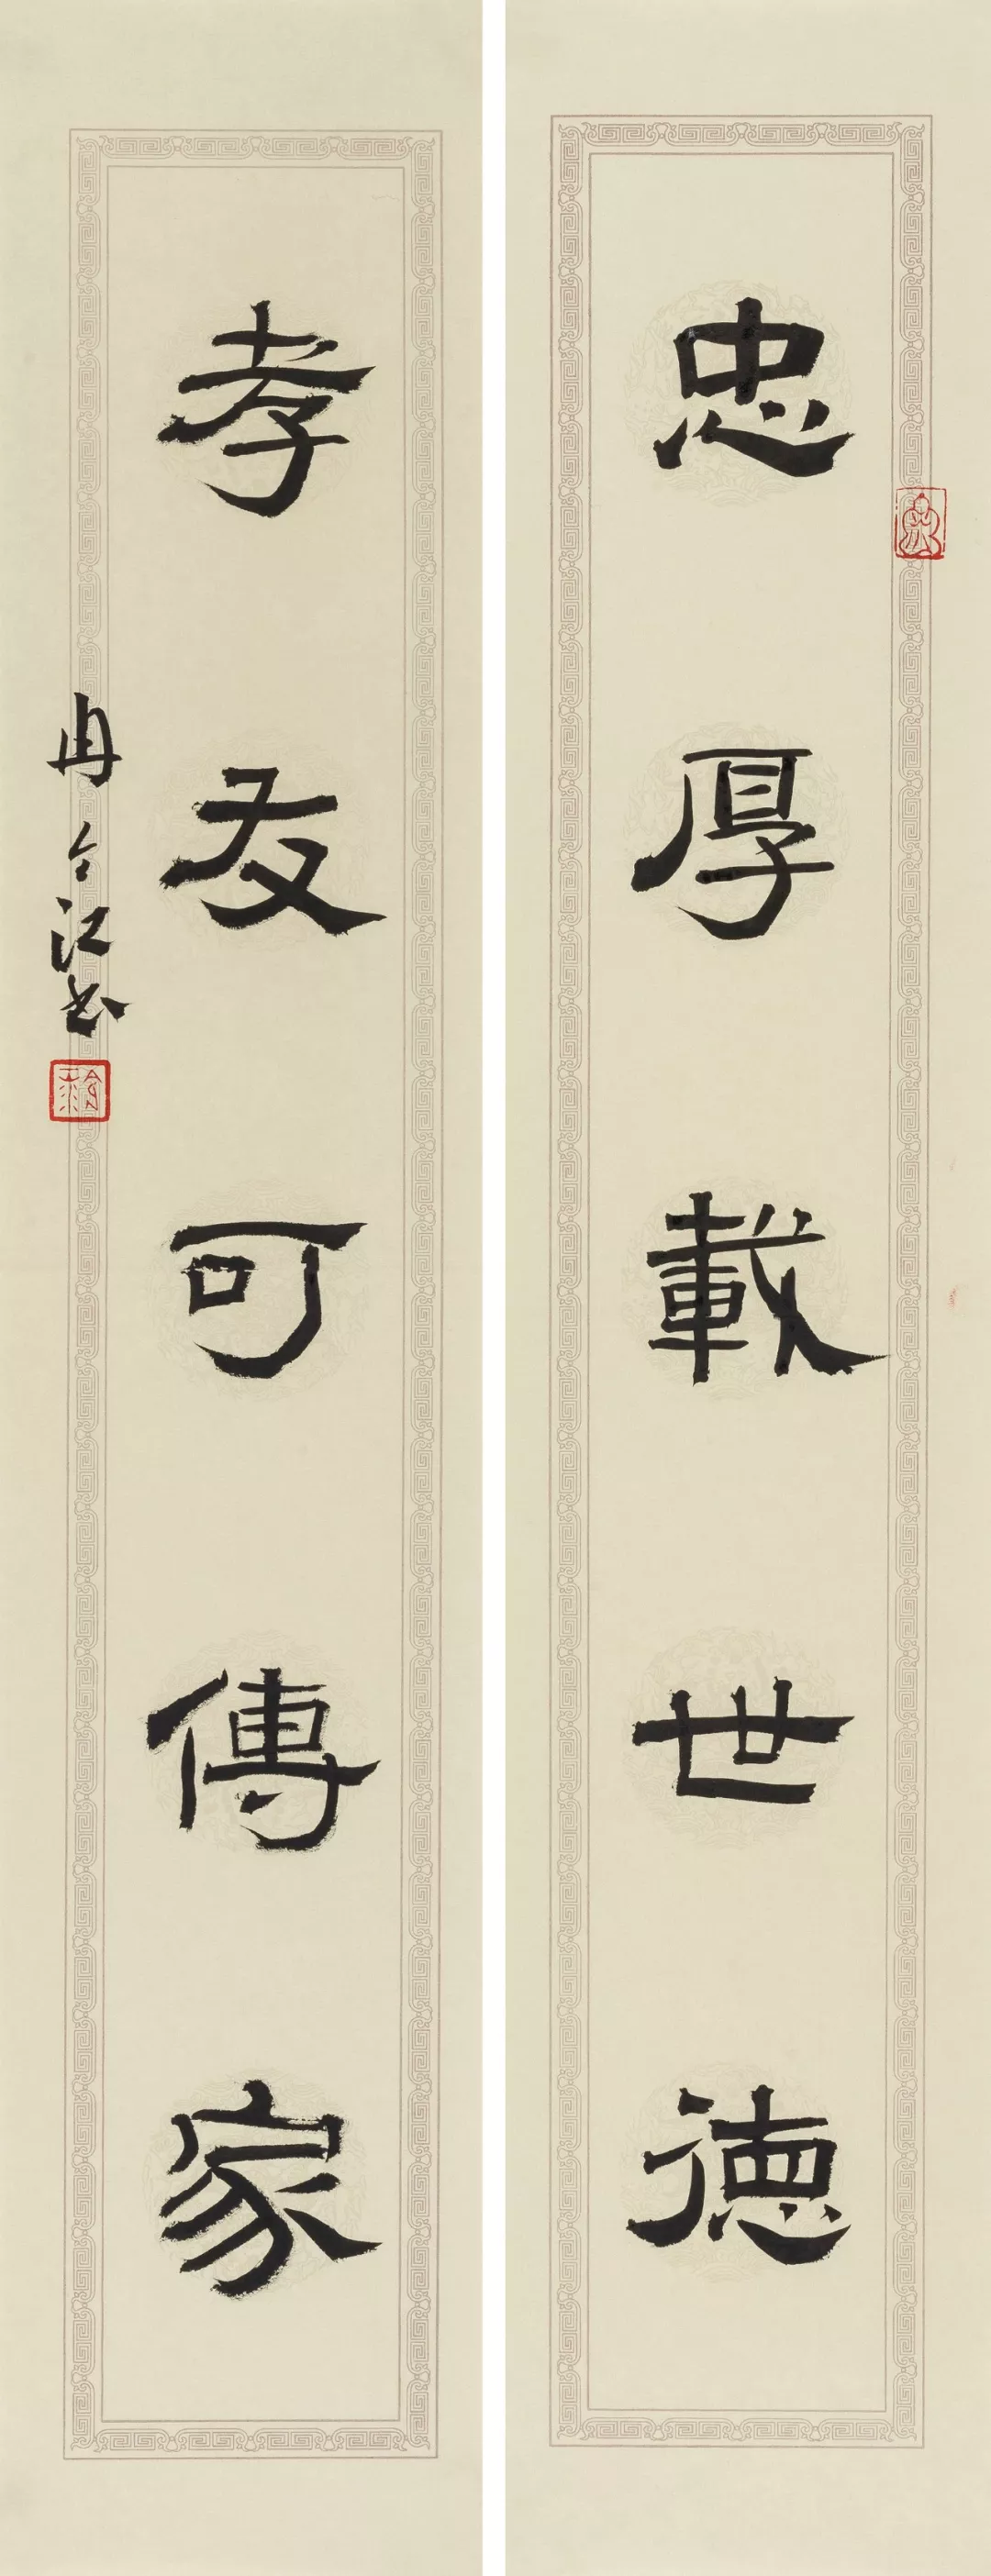 忠厚載世德
孝友可傳家
冉令江書